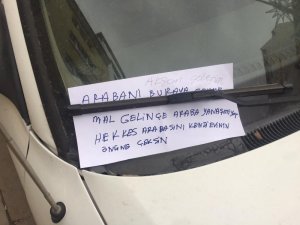 ARABANI BURAYA
MAL GELİNCE ARABA YANAŞAMIYOR
HERKES ARABASINI KENDİ EVİNİN
ÖNÜNE ÇEKSİN